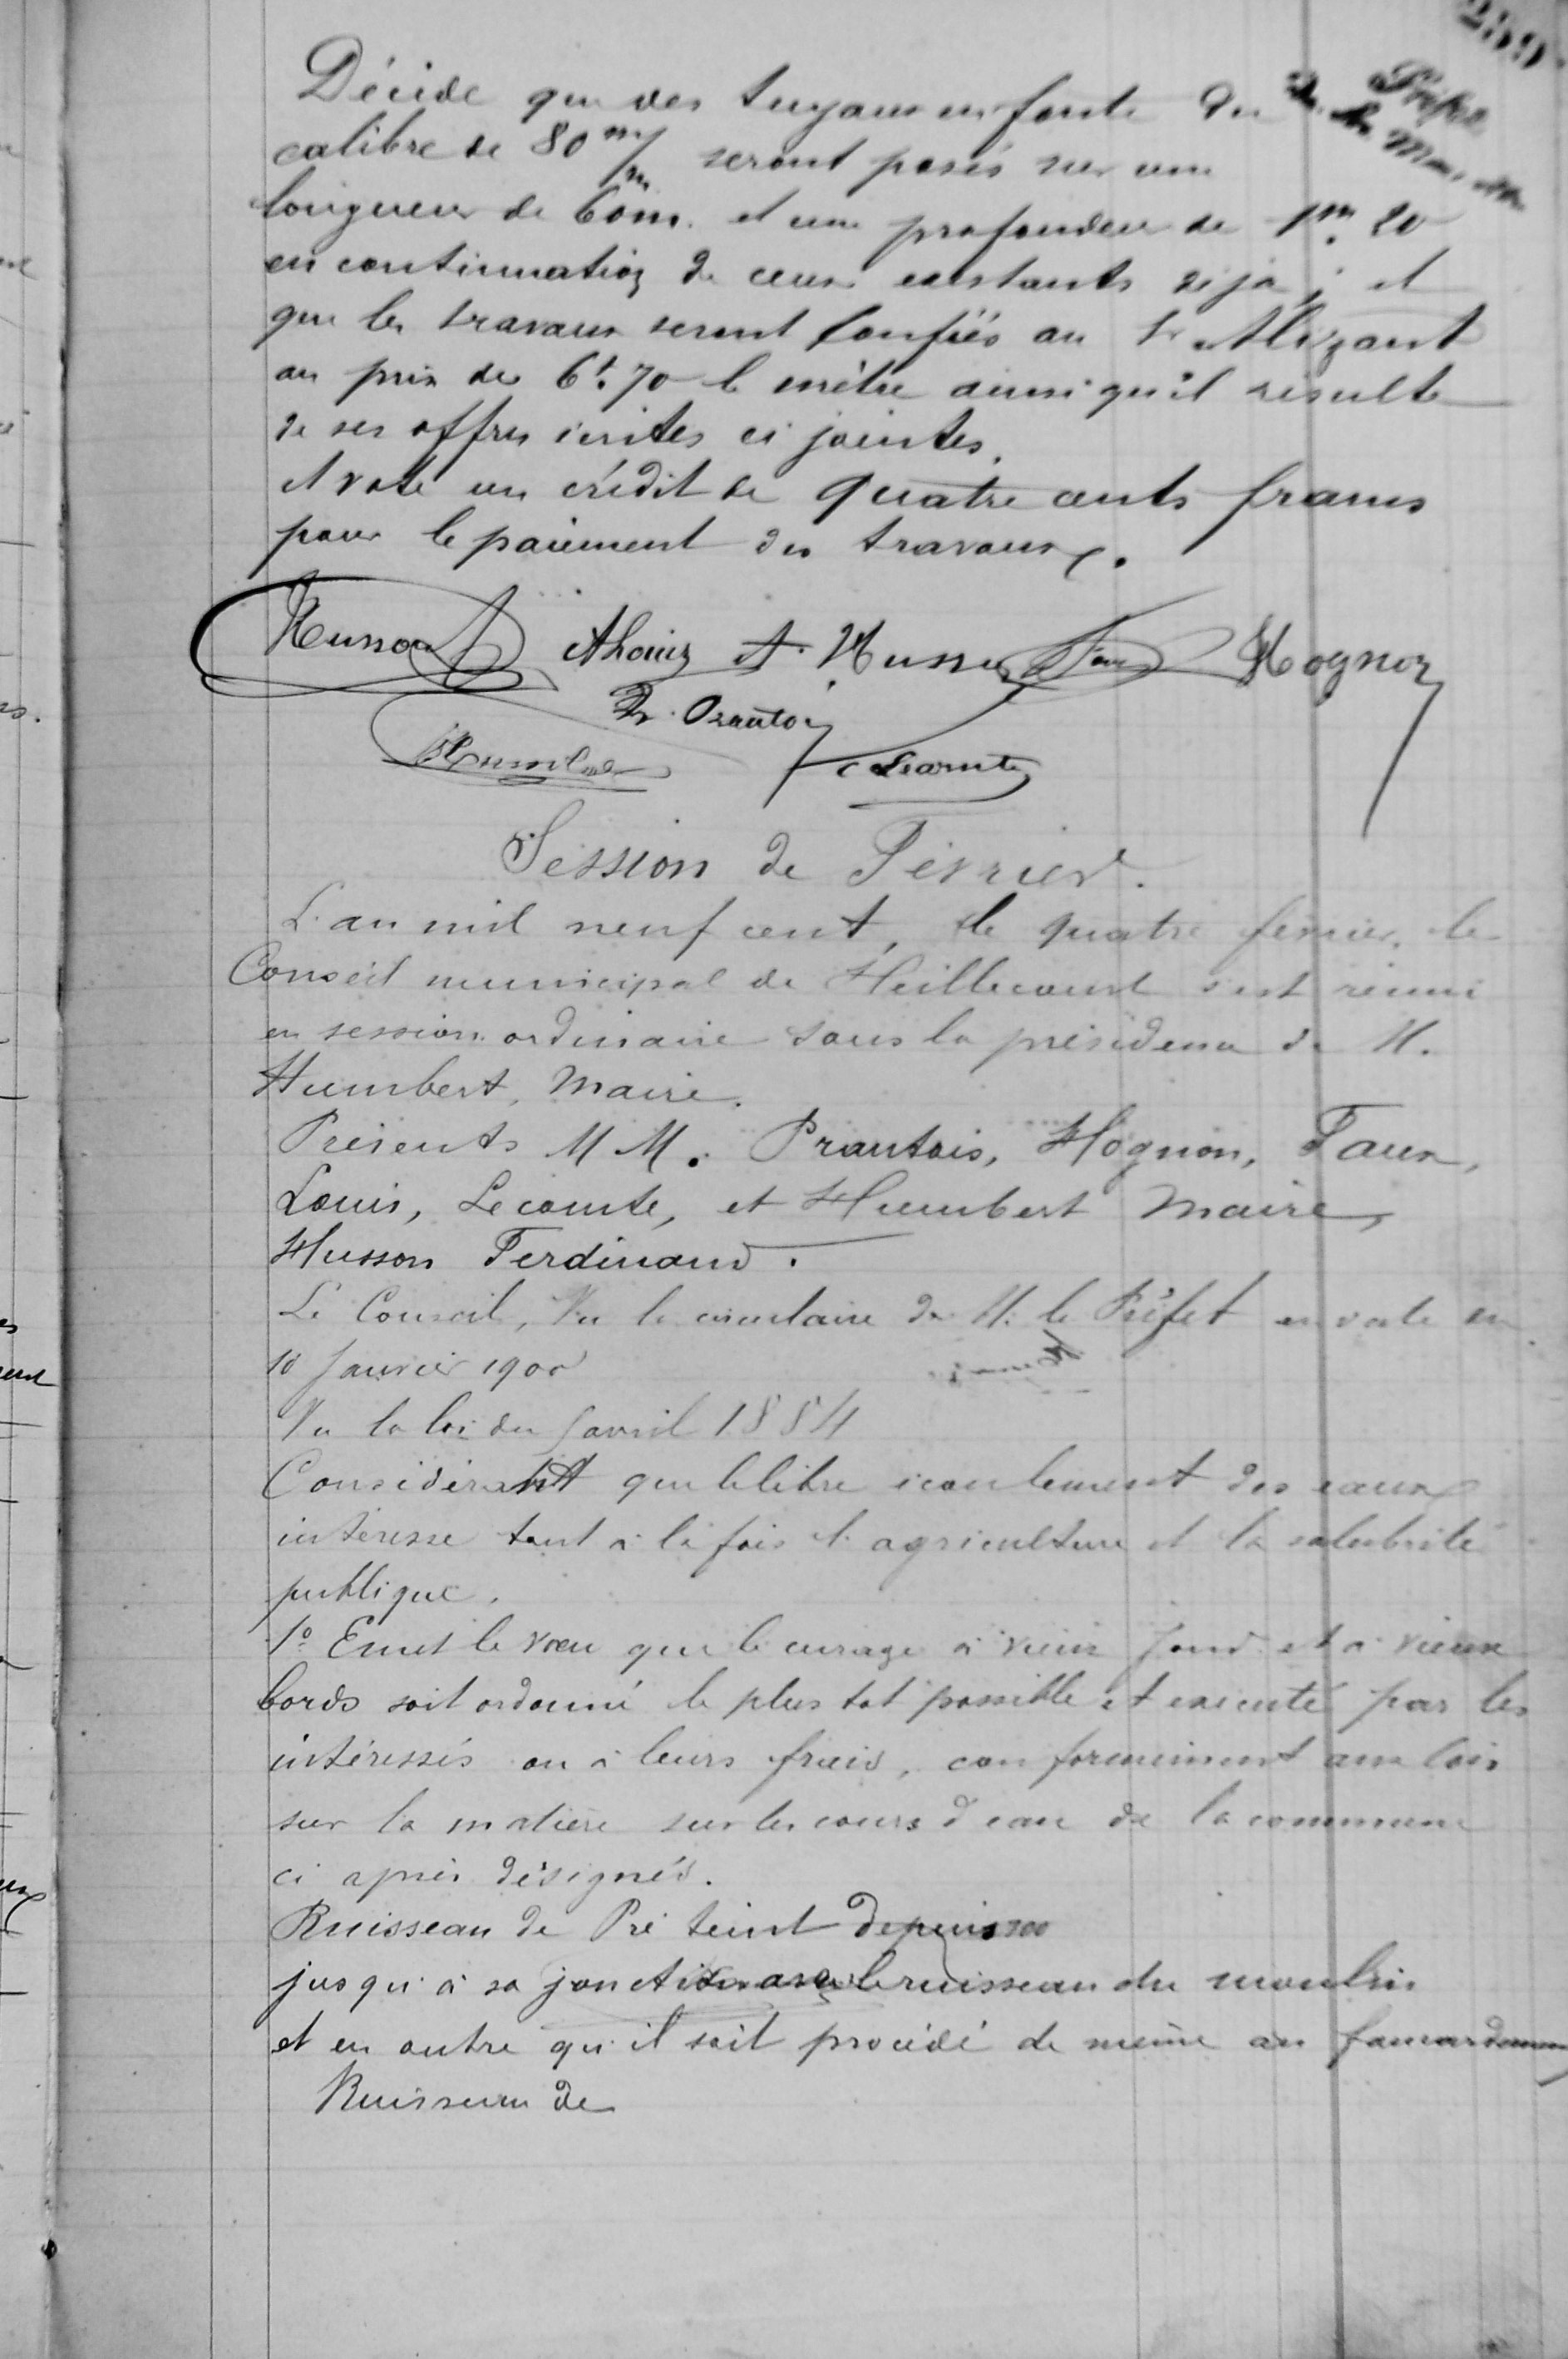 Décide que des tuyaux en fonte du
calibre de 80 m/m seront posés sur une
longueur de 60m. et une profondeur de 1m. 20
en continuation de ceux existants déjà; et
que les travaux seront confiés au Sr Alizant
au prix de 6f.70 le mètre ainsi qu'il résulte
de ses offres écrites ci jointes.
et vote un crédit de quatre cents francs
pour le paiement des travaux.
Husson A Louis A. Husson Faux Hognon
Prautois
Humbert Lecomte
Session de Février.
L'an mil neuf cent, le quatre février, le
Conseil municipal de Heillecourt s'est réuni
en session ordinaire sous la présidence de M.
Humbert, Maire.
Présents MM. Prautois, Hognon, Faux,
Louis, Lecomte, et Humbert Maire,
Husson Ferdinand.
Le Conseil, Vu la circulaire de M. le Préfet en date du
10 Janvier 1900
Vu la loi du 5 avril 1884
Considérant que le libre écoulement des eaux
intéresse tout à la fois l'agriculture et la salubrité
publique.
1° Emet le vœu que le curage à vieux fond et à vieux
bords soit ordonné le plus tot possible et exécuté par les
intéressés ou à leurs frais, conformément aux lois
sur la matière sur les cours d'eau de la commune
ci après désignés.
Ruisseau de Pré teint depuis
jusqu'à sa jonction avec le ruisseau du moulin
et en outre qu'il soit procédé de même au faucardement
Ruisseau de